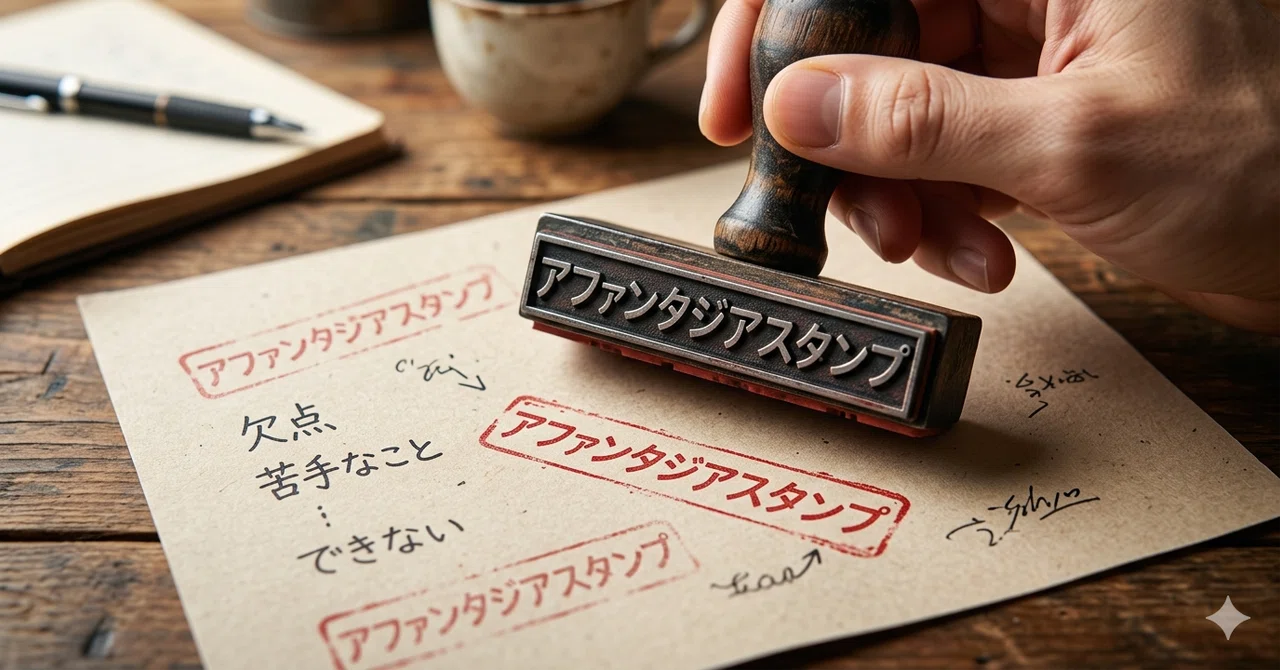 アファンタジアスタンプ
アファンタジアスタンプ
欠点
苦手なこと
⋮
できない
アファンタジアスタンプ
アファンタジアスタンプ